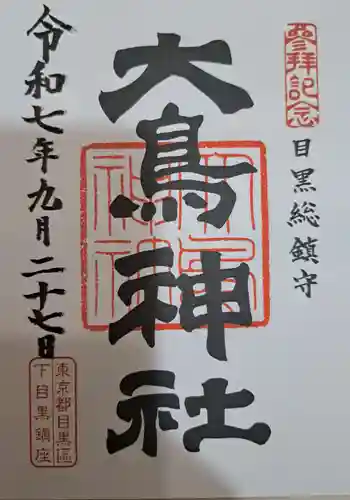 參拜記念
目黒総鎮守
大鳥神社
令和七年九月二十七日
東京都目黒區
下目黒鎭座